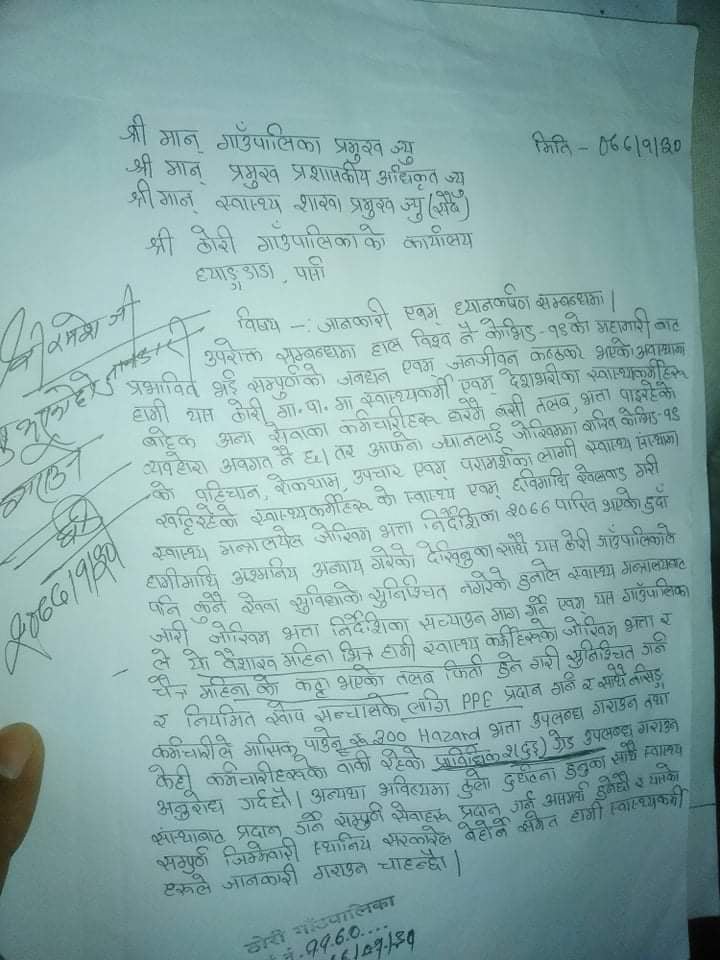 श्री मान् गाउँपालिका प्रमुख ज्यु
मिति - ०७७/१/३०
श्री मान् प्रमुख प्रशासकीय अधिकृत ज्यु
श्री मान् स्वास्थ्य शाखा प्रमुख ज्यु (सबै)
श्री ठोरी गाउँपालिकाको कार्यालय
पर्सा
विषय -: जानकारी एवम् ध्यानकर्षण सम्बन्धमा।
उपरोक्त सम्बन्धमा हाल विश्व नै कोभिड-१९को महामारी बाट
प्रभावित भई सम्पुर्णको जनधन एवम् जनजीवन कष्टकर भएको अवस्थामा
हामी यस ठोरी गा.पा. मा स्वास्थ्यकर्मी एवम् देशभरीका स्वास्थ्यकर्मीहरु
बाहेक अन्य सेवाका कर्मचारीहरु घरमै बसी तलब, भत्ता पाइरहेको
व्यहोरा अवगत नै छ। तर आफ्नो ज्यानलाई जोखिममा राखि कोभिड-१९
को पहिचान, रोकथाम, उपचार एवम् परामर्शका लागी स्वास्थ्य संस्थामा
खट्टिरहेको स्वास्थ्यकर्मीहरु को स्वास्थ्य एवम् छविमाथि खेलवाड गरी
स्वास्थ्य मन्त्रालयले जोखिम भत्ता निर्देशिका २०७७ पारित भएको हुदाँ
हामीमाथि अन्याय गरेको देखिनुका साथै यस ठोरी गाउँपालिकाले
पनि कुनै सेवा सुविधाको सुनिश्चित नगरेको हुनाले स्वास्थ्य मन्त्रालयबाट
जारी जोखिम भत्ता निर्देशिका सच्याउन माग गर्ने एवम् यस गाउँपालिका
ले यो बैशाख महिना भित्र हामी स्वास्थ्य कर्मीहरुको जोखिम भत्ता र
चैत्र महिना को कट्टा भएको तलब फिर्ता हुने गरी सुनिश्चित गर्न
र नियमित खोप सन्चालको लागि PPE प्रदान गर्न र साथै नर्सिङ्ग
कर्मचारीले मासिक पाउने रु ३०० Hazard भत्ता उपलब्ध गराउन तथा
केही कर्मचारीहरुको बाकी रहेको प्राविधिक २(दुई) ग्रेड उपलब्ध गराउन
अनुरोध गर्दछौ। अन्यथा भविष्यमा ठुलो दुर्घटना हुनुका साथै स्वास्थ्य
संस्थाबाट प्रदान गर्ने सम्पुर्ण सेवाहरु प्रदान गर्न असमर्थ हुनेछौ र यसको
सम्पुर्ण जिम्मेवारी स्थानिय सरकारले बेहोर्ने समेत हामी स्वास्थ्यकर्मी
हरुले जानकारी गराउन चाहन्छौ।
ठोरी गाउँपालिका